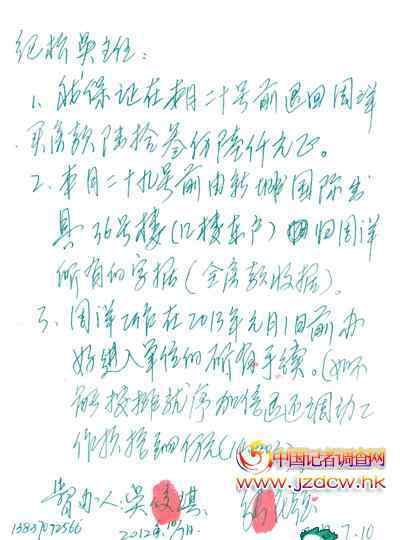 纪检吴主任:
1、我保证在本月二十号前退回周洋
买房款陆拾叁万陆仟元正。
2、本月二十九号前由新城国际出
具36号楼(12楼东户)归周洋
所有的字据(全房款收据)。
3、周洋工作在2013年元月1日前办
好进入单位的所有手续。(如不
能按排就序加倍退还调动工
作
督办人:吴
13837072566 2012年
7.10
中国记者调查网
www.jzdcw.hk